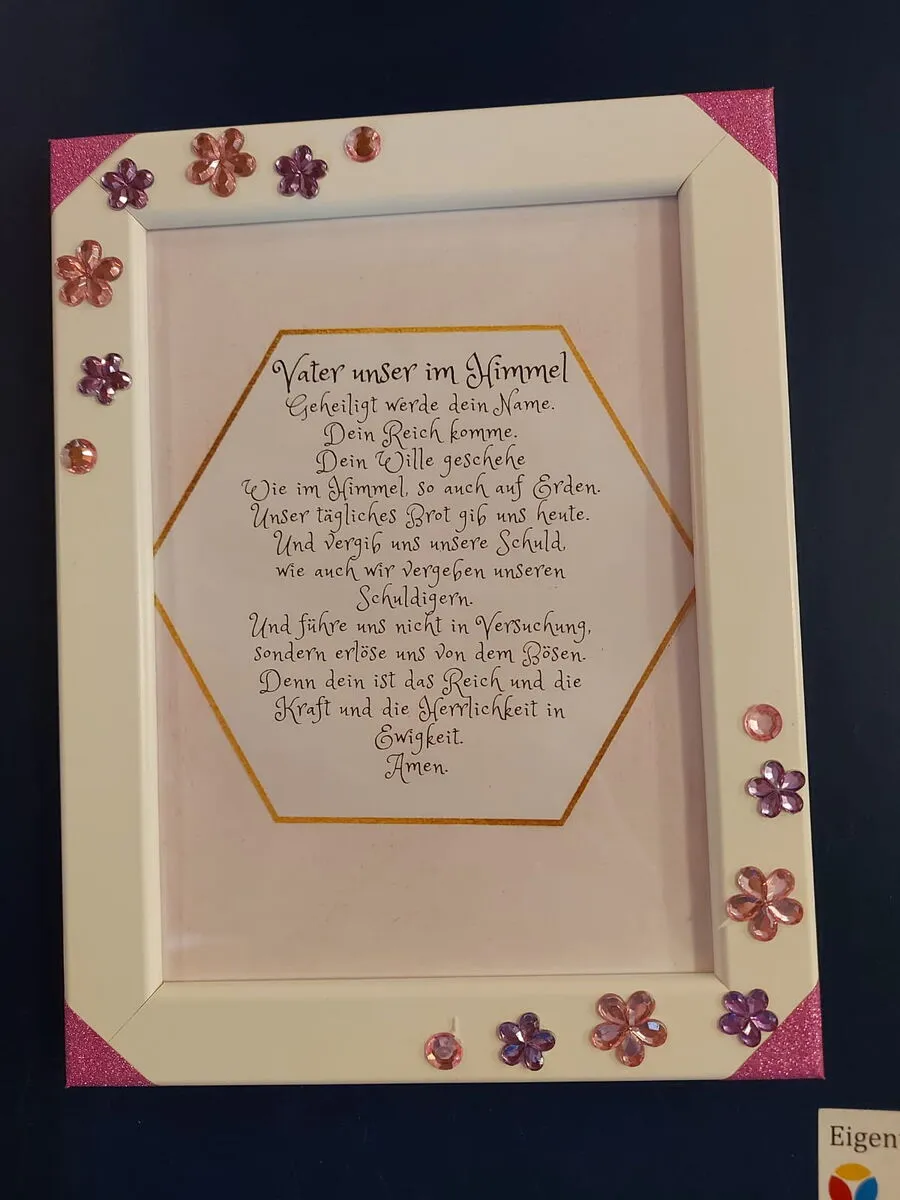 Vater unser im Himmel
Geheiligt werde dein Name.
Dein Reich komme.
Dein Wille geschehe
Wie im Himmel, so auch auf Erden.
Unser tägliches Brot gib uns heute.
Und vergib uns unsere Schuld,
wie auch wir vergeben unseren
Schuldigern.
Und führe uns nicht in Versuchung,
sondern erlöse uns von dem Bösen.
Denn dein ist das Reich und die
Kraft und die Herrlichkeit in
Ewigkeit.
Amen.
Eigen